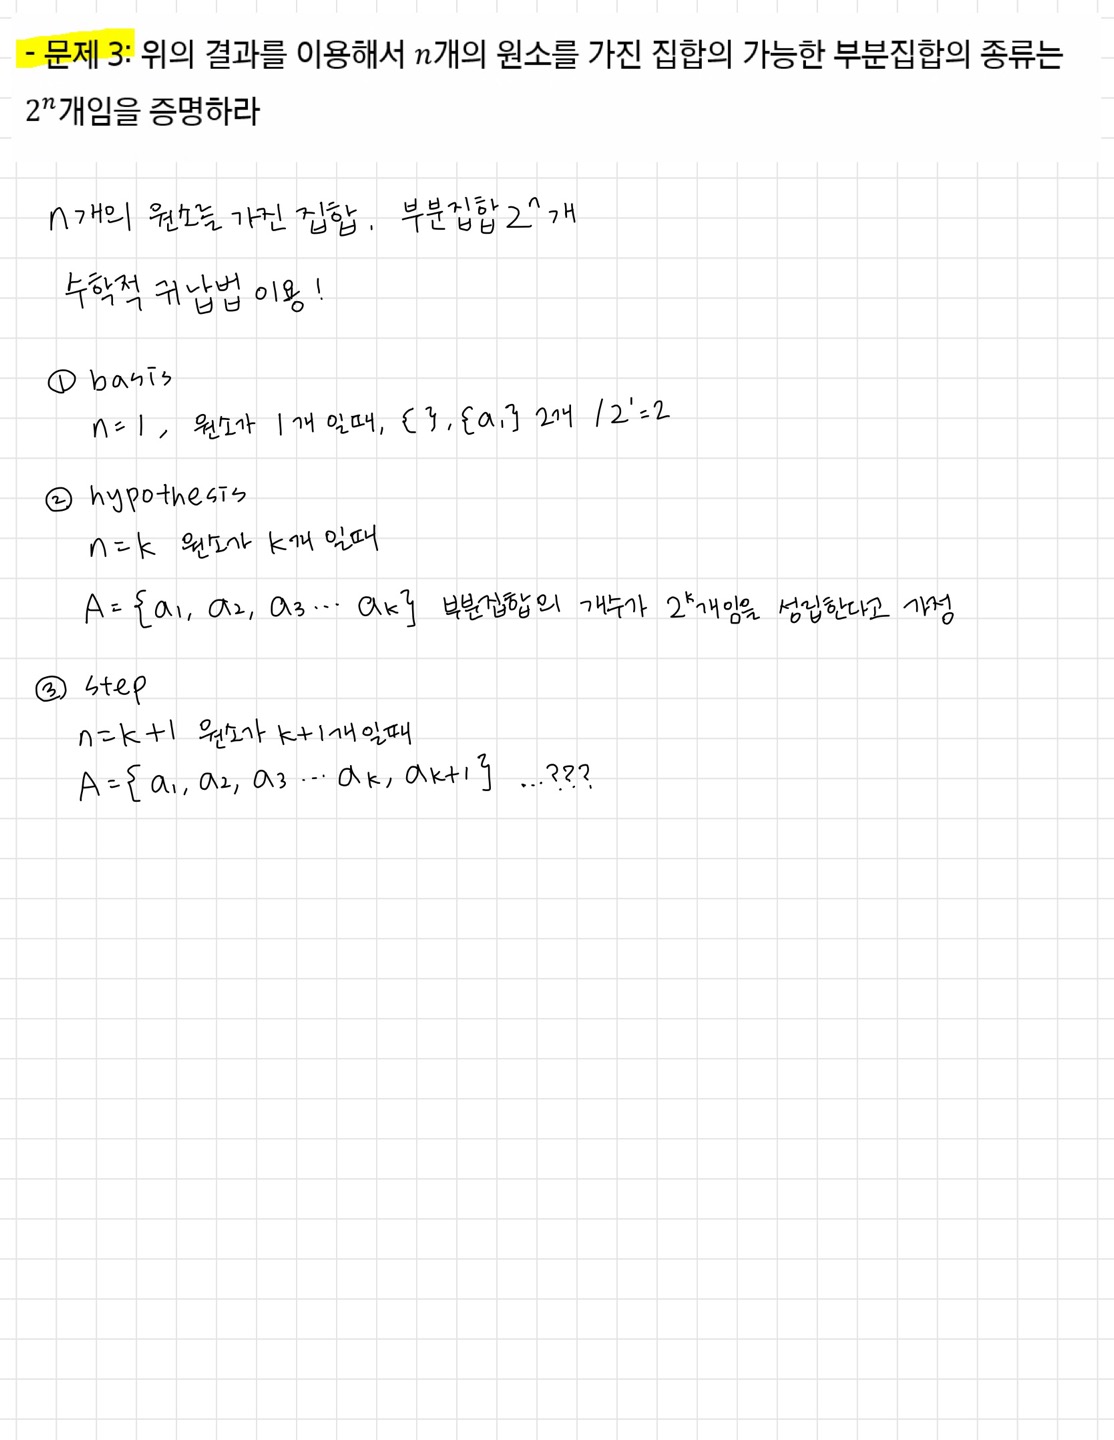 - 문제 3: 위의 결과를 이용해서 n개의 원소를 가진 집합의 가능한 부분집합의 종류는
2ⁿ개임을 증명하라
n개의 원소를 가진 집합. 부분집합 2ⁿ개
수학적 귀납법 이용!
① basis
n=1, 원소가 1개 일때, { }, {a₁} 2개 / 2¹=2
② hypothesis
n=k 원소가 k개 일때
A={a₁, a₂, a₃ ⋯ aₖ} 부분집합의 개수가 2ᵏ개임을 성립한다고 가정
③ step
n=k+1 원소가 k+1개일때
A={a₁, a₂, a₃ ⋯ aₖ, aₖ₊₁} ...???